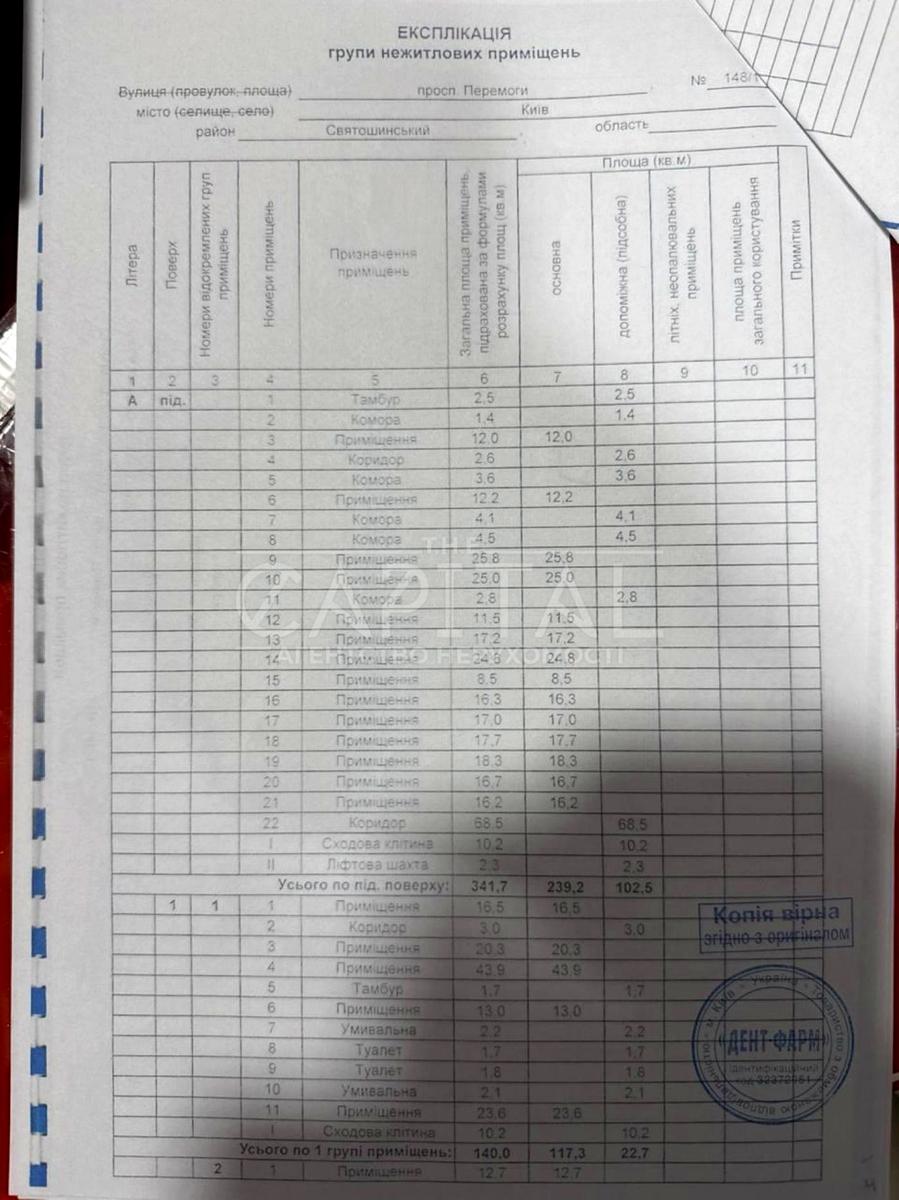 ЕКСПЛІКАЦІЯ
групи нежитлових приміщень
№ 148/1
Вулиця (провулок, площа) просп. Перемоги
місто (селище, село) Київ
район Святошинський область
Літера Поверх Номери відокремлених груп приміщень Номери приміщень Призначення приміщень Загальна площа приміщень, підрахована за формулами розрахунку площ (кв.м) Площа (кв.м) основна допоміжна (підсобна) літніх, неопалювальних приміщень площа приміщень загального користування Примітки
1 2 3 4 5 6 7 8 9 10 11
А під. 1 Тамбур 2,5 2,5
2 Комора 1,4 1,4
3 Приміщення 12,0 12,0
4 Коридор 2,6 2,6
5 Комора 3,6 3,6
6 Приміщення 12,2 12,2
7 Комора 4,1 4,1
8 Комора 4,5 4,5
9 Приміщення 25,8 25,8
10 Приміщення 25,0 25,0
11 Комора 2,8 2,8
12 Приміщення 11,5 11,5
13 Приміщення 17,2 17,2
14 Приміщення 24,8 24,8
15 Приміщення 8,5 8,5
16 Приміщення 16,3 16,3
17 Приміщення 17,0 17,0
18 Приміщення 17,7 17,7
19 Приміщення 18,3 18,3
20 Приміщення 16,7 16,7
21 Приміщення 16,2 16,2
22 Коридор 68,5 68,5
I Сходова клітина 10,2 10,2
II Ліфтова шахта 2,3 2,3
Усього по під. поверху: 341,7 239,2 102,5
1 1 1 Приміщення 16,5 16,5
2 Коридор 3,0 3,0
3 Приміщення 20,3 20,3
4 Приміщення 43,9 43,9
5 Тамбур 1,7 1,7
6 Приміщення 13,0 13,0
7 Умивальна 2,2 2,2
8 Туалет 1,7 1,7
9 Туалет 1,8 1,8
10 Умивальна 2,1 2,1
11 Приміщення 23,6 23,6
I Сходова клітина 10,2 10,2
Усього по 1 групі приміщень: 140,0 117,3 22,7
2 1 Приміщення 12,7 12,7
THE
CAPITAL
АГЕНТСТВО НЕРУХОМОСТІ
Копія вірна
згідно з оригіналом
Україна * Товариство з обмеженою відповідальністю * м. Київ
«ДЕНТ-ФАРМ»
Ідентифікаційний
код